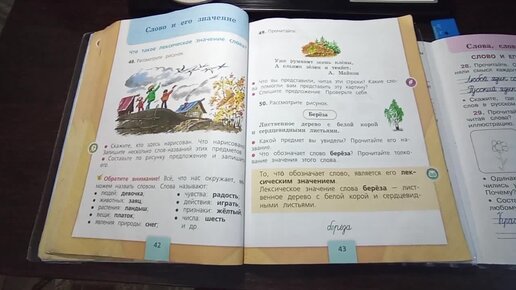 Слово и его значение
Что такое лексическое значение слова?
48. Рассмотрите рисунок.
• Скажите, кто здесь нарисован. Что нарисовано?
Запишите несколько слов-названий этих предметов.
• Составьте по рисунку предложение и запишите
его.
Обратите внимание! Всё, что нас окружает, мы
можем назвать словом. Слова называют
• людей: девочка;
• животных: заяц;
• растения: ландыш;
• вещи: платок;
• явления природы: снег;
• чувства: радость;
• действия: играть;
• признаки: жёлтый;
• числа: шесть
и др.
42
49. Прочитайте.
Уж румянит осень клёны,
А ельник зелен и тенист.
А. Майков
• Что вы представили, читая эти строки? Какие сло-
ва помогли вам представить эту картину?
• Спишите предложение. Проверьте себя.
50. Рассмотрите рисунок.
Берёза
Лиственное дерево с белой корой
и сердцевидными листьями.
• Какой предмет вы увидели? Прочитайте его на-
звание.
• Что обозначает слово берёза? Прочитайте толко-
вание значения этого слова.
То, что обозначает слово, является его лек-
сическим значением.
Лексическое значение слова берёза — лист-
венное дерево с белой корой и сердцевид-
ными листьями.
берёза
43
Слова, слов
28. Прочитайте.
Русский язык
• Спишите
29. Прочитайте
иллюстрацию